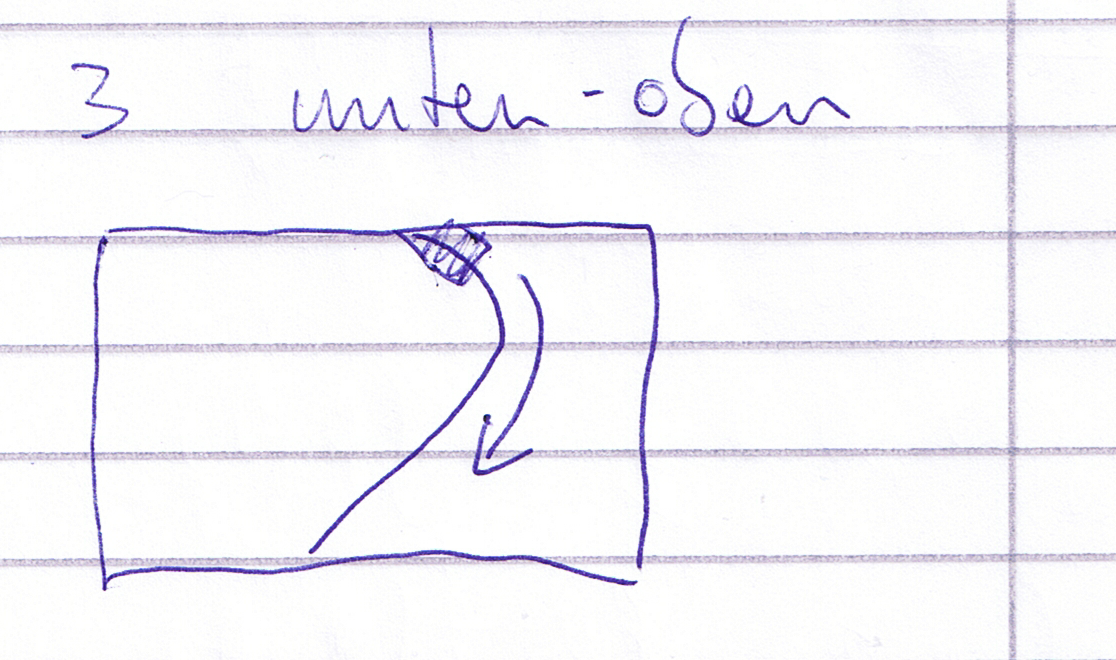 3 unten-oben